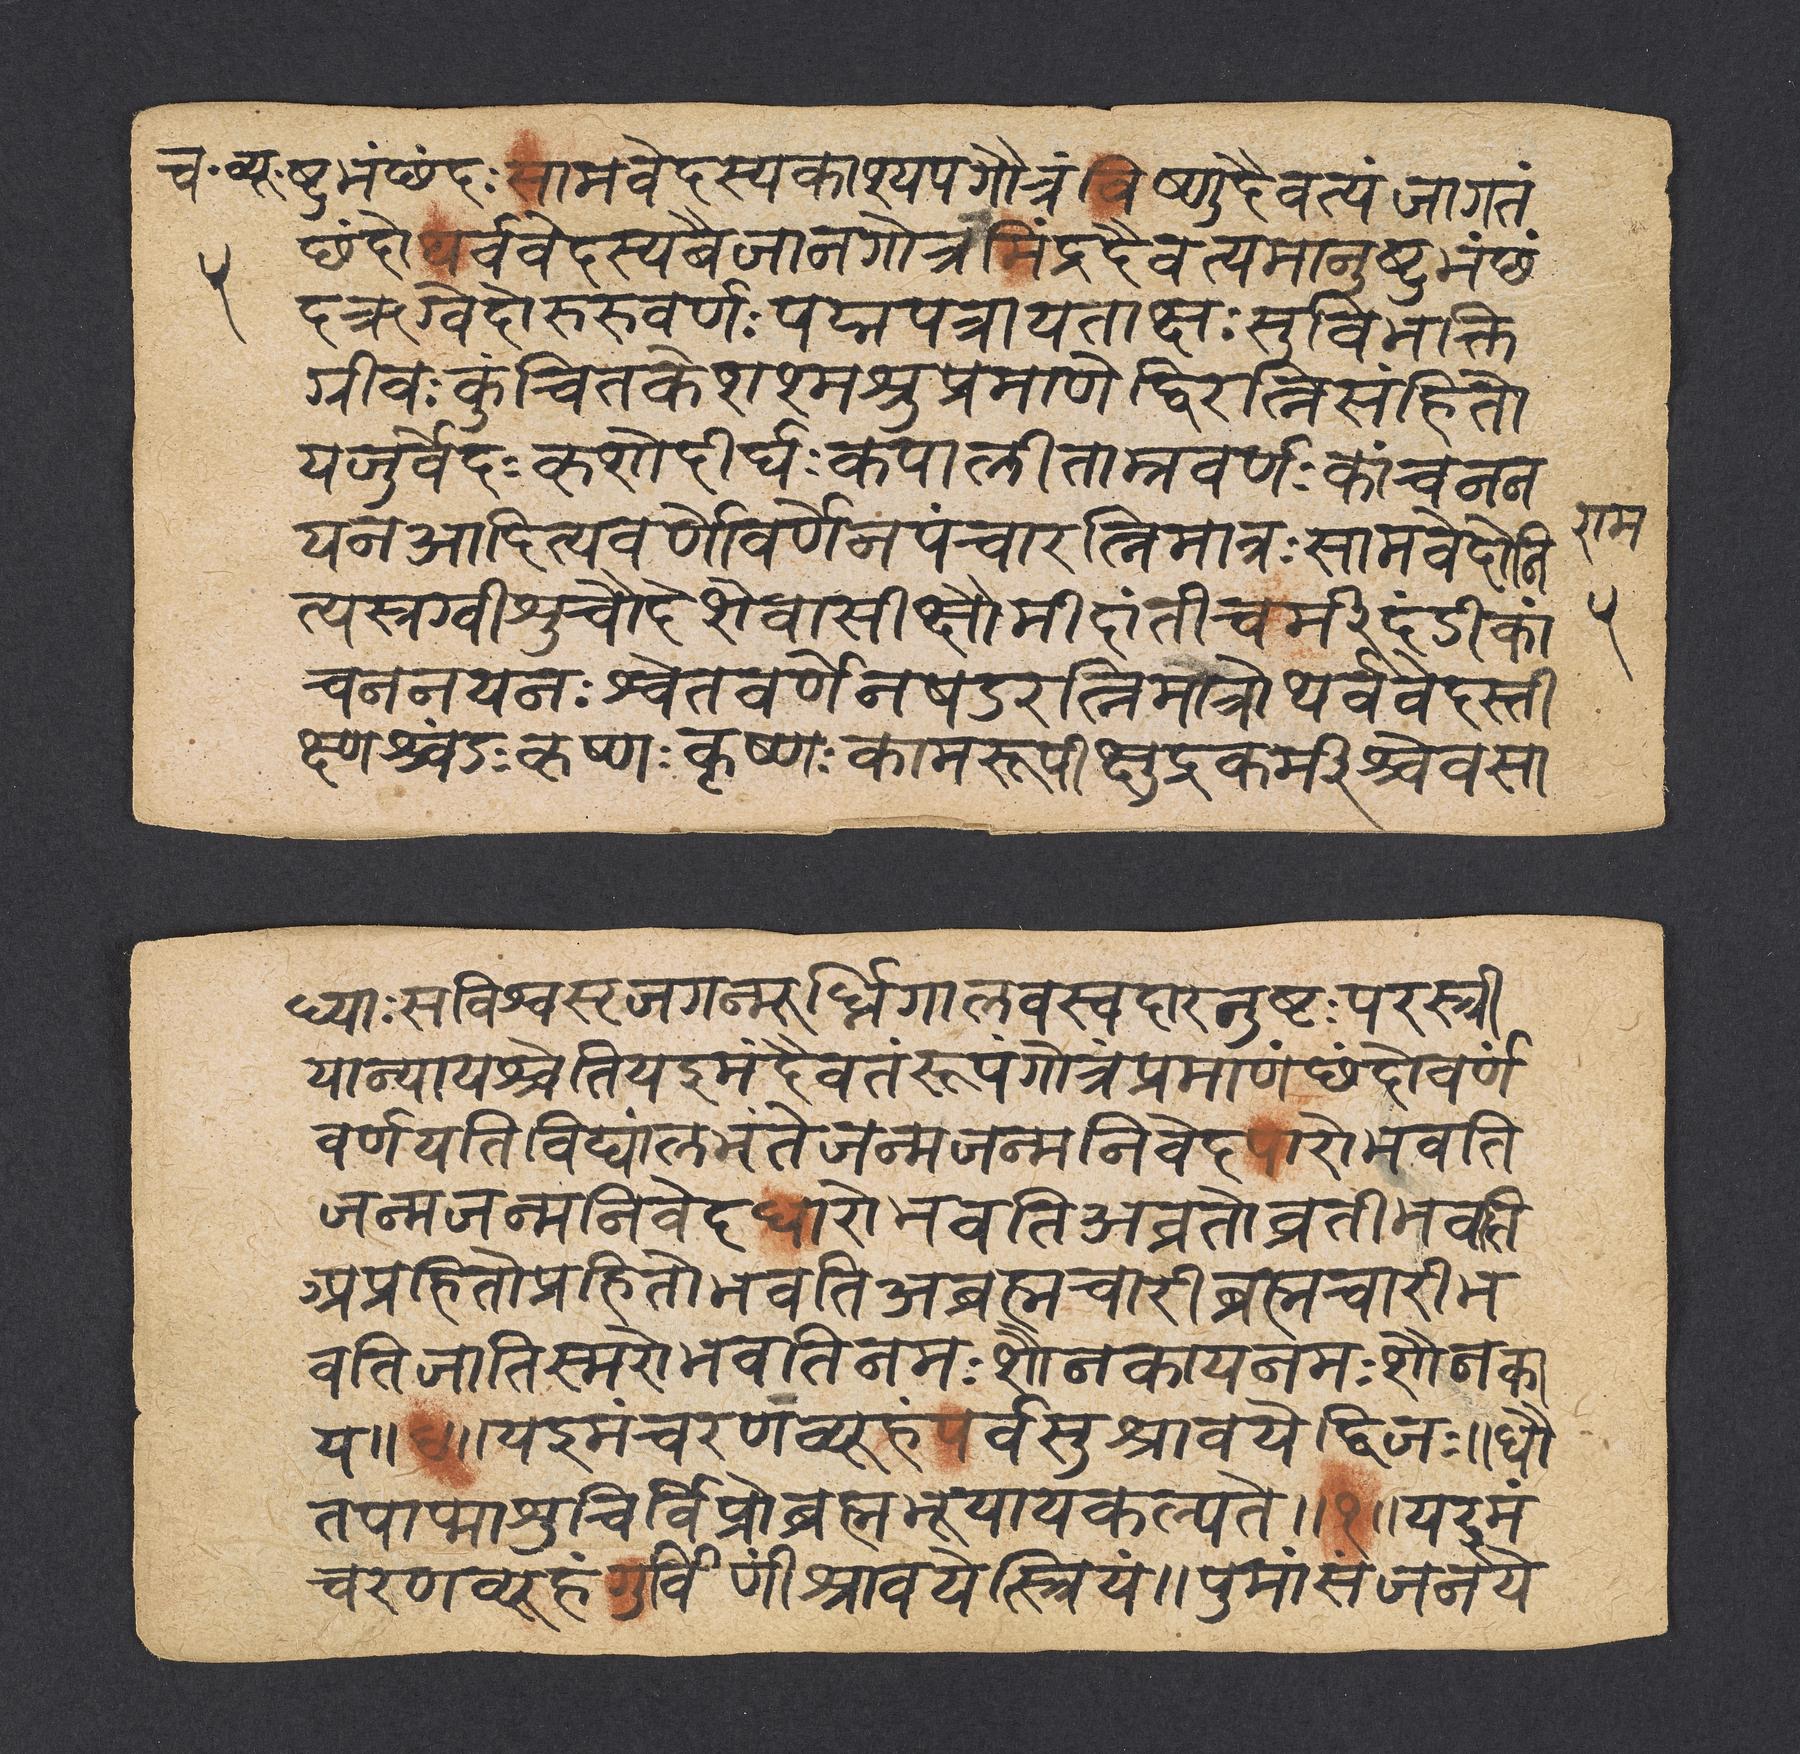 च॰व्यू॰ष्टुभंछंदः सामवेदस्यकाश्यपगौत्रंविष्णुदैवत्यंजागतं
५
छंदोथर्ववेदस्यबैजानगोत्रमिंद्रदैवत्यमानुष्टुभंछं
दऋग्वेदोरुरुवर्णः पद्मपत्रायताक्षः सुविभक्ति
ग्रीवः कुंचितकेशश्मश्रुप्रमाणेद्विरत्निसंहितो
यजुर्वेदः कृशोदीर्घः कपालीताम्रवर्णः कांचनन
यनआदित्यवर्णेविर्णेनपंचारत्निमात्रः सामवेदोनि
राम
त्यस्त्रग्वीशुचौदेशेवासीक्षौमीदांतीचर्मीदंडीकां
५
चननयनः श्वेतवर्णेनषडरत्निमात्रोथर्ववेदस्ती
क्ष्णश्चंडः कृष्णः कृष्णः कामरूपीक्षुद्रकर्मीश्चेवसा
ध्याः सविश्वसृजगन्मूर्ध्निगालवस्वदारनुष्टः परस्त्री
यान्यायश्चेतियइमंदैवतंरूपंगोत्रंप्रमाणंछंदोवर्णं
वर्णयतिविद्यांलभंतेजन्मजन्मनिवेदपारोभवति
जन्मजन्मनिवेदधारोभवतिअव्रतोव्रतीभवति
अप्रहितोप्रहितोभवतिअब्रह्मचारीब्रह्मचारीभ
वतिजातिस्मरोभवतिनमः शौनकायनमः शौनका
य॥४॥यइमंचरणव्यूहंपर्वसुश्रावयेद्विजः॥धौ
तपाप्माशुचिर्विप्रोब्रह्मभूयायकल्पते॥१॥यइमं
चरणव्यूहंगुर्विणींश्रावयेस्त्रियं॥पुमांसंजनये